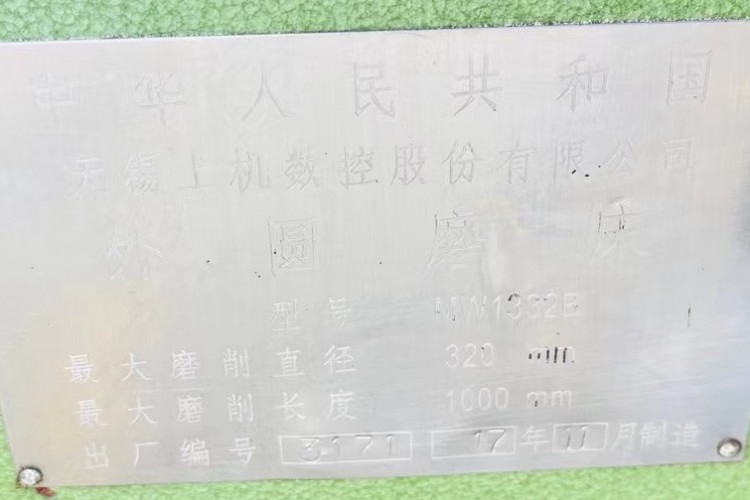 中华人民共和国
无锡上机数控股份有限公司
外圆磨床
型号 MW1332B
最大磨削直径 320 mm
最大磨削长度 1000 mm
出厂编号 3171 17年11月制造